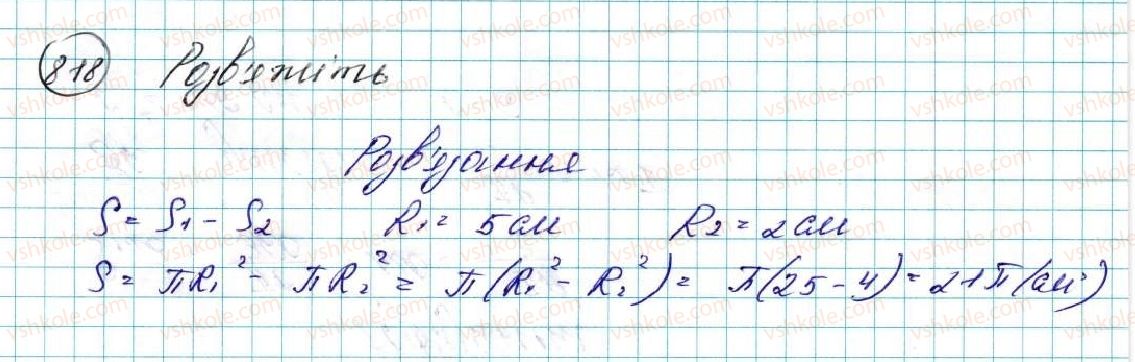 818 Розв'яжіть
Розв'язання
S = S₁ - S₂ R₁ = 5 см R₂ = 2 см
S = πR₁² - πR₂² = π(R₁² - R₂²) = π(25 - 4) = 21π (см²)